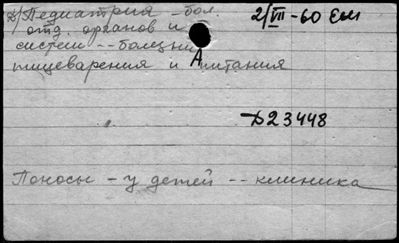 2) Педиатрия - бол. 2/VII-60 Ем
отд. органов и
систем -- болезни
А
пищеварения и питания
D23448
Поносы - у детей -- клиника